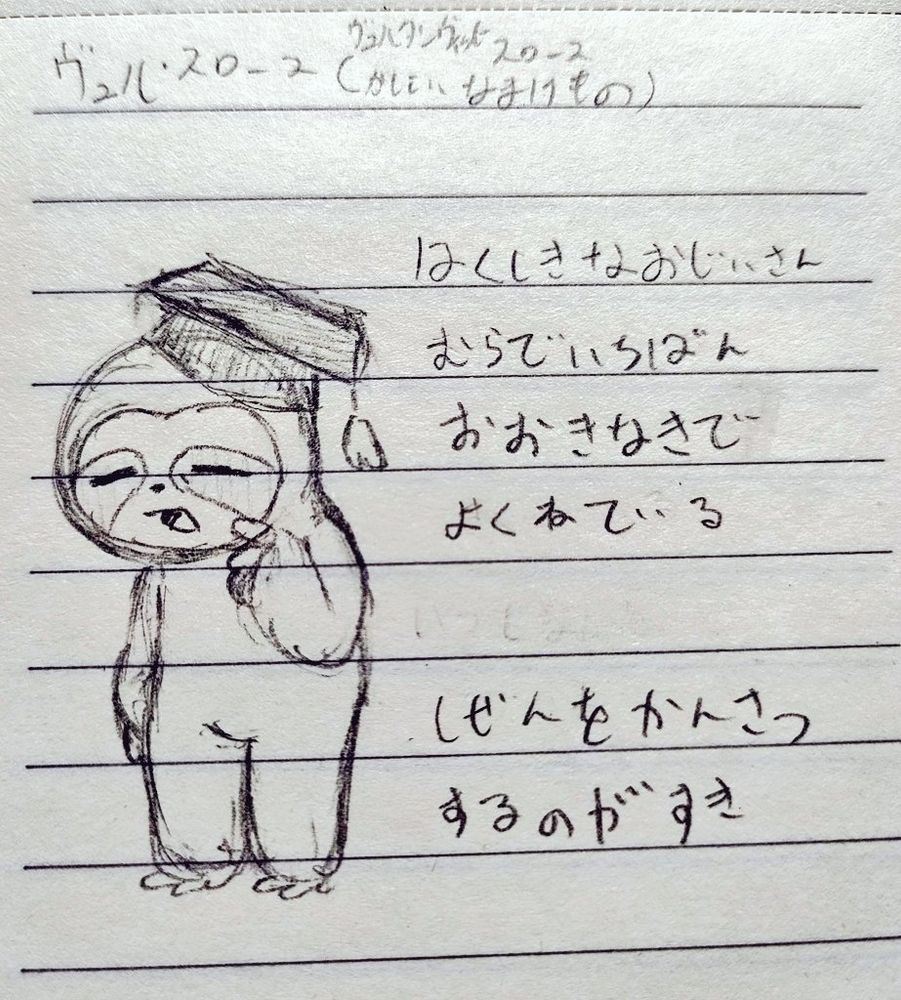 ヴュル・スロース
スロース
(かしこい なまけもの)
はくしきなおじいさん
むらでいちばん
おおきなきで
よくねている
しぜんをかんさつ
するのがすき